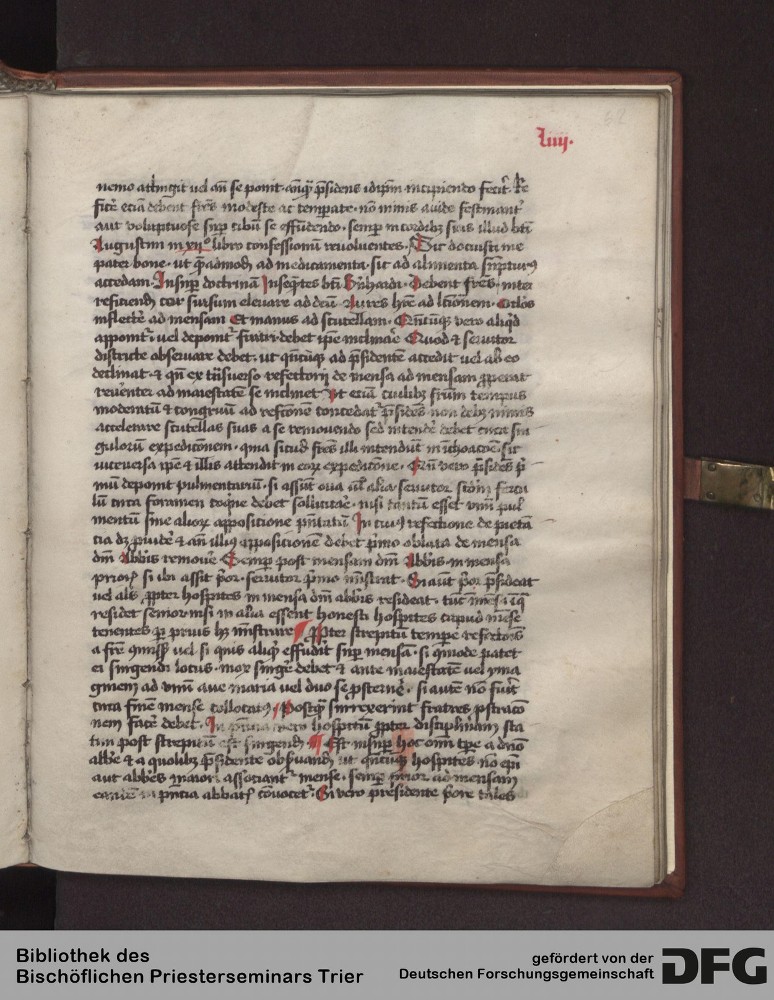 62
liiij.
nemo attingit uel an̄ se ponit. an̄q̄ p̄sidens idip̄m incipiendo fecerit. Re
ficẽ eciā debent fr̄es modeste ac temperate. nō nimis auide festinant̄
aut voluptuose sup̄ cibū se effūdendo. semp̄ in cordibꝫ suis illud bt̄i
Augustini in xꝰ libro confessionū reuoluentes. Sic docuisti me
pater bone. ut q̄admodū ad medicamenta. sic ad alimenta sūpturꝰ
accedam. Insup̄ doctrinā bt̄i Bn̄hardi. Debent fr̄es. inter
reficiendū cor sursum eleuare ad deū. Aures hr̄e ad lc̄ionem. Oculos
inflectẽ ad mensam Et manus ad scutellam. Qn̄cūqꝫ vero aliqd
apponit̄. vel deponit̄ fratri debet ip̄e inclinaẽ Quod & seruitor
districte obseruare debet. ut qn̄cūqꝫ ad p̄sidentē accedit vel ab eo
declinat. & qn̄ ex tn̄suerso refectorij de mensa ad mensam
reuerenter ad maiestatē se inclinet. Ut eciā cuilibꝫ frūm tempus
moderatū & congruū ad refc̄onē concedat̄ p̄sidēs non debꝫ nimis
accelerare scutellas suas a se remouendo sed intendẽ debet circa sin
gulorū expedicōnem. quia sicud fr̄es illi intendunt in ichoacōne. sic
uiceuersa ip̄e & illis attendit in eoꝝ expedicōne. Qn̄ vero p̄sidēs p̄
mū deponit pulmentariū. si assūt oua ul̄ alia seruitor
circa foramen coqne debet sollicitaẽ. nisi tantū esset vnū pul
mentū sine alioꝝ apposicione In cuiꝰ refectione de pieta
cia dꝫ an̄ illiꝰ apposicionē debet p̄mo oblata de mensa
dn̄i Abbīs remouẽ Semp̄ post mensam dn̄i Abbīs in mensa
priorꝫ si ibi assit p̄or. seruitor p̄mo mīstrat. Si aut̄ p̄or p̄sideat
uel als̄ p̱pter hospites in mensa dn̄i abbīs resideat. tūc
residet senior nisi in alia essent honesti hospites capud mēse
tenentes p̄ prius hꝫ mīstrare ¶ P̱pter strepitū tempe refectōis
a fr̄e vel si quis aliqd effudit sup̄ mensā. si q̄mode patet
ei singendi locus. mox singẽ debet & ante maiestatē vel yma
ginem ad vnū aue maria vel duo se p̱sternẽ. si autē nō fuit̄
circa finē mense collocatꝰ ¶ Postq̄ surrexerint fratres p̱straciō
nem facẽ debet. In p̄ntia vero hospitū p̱pter disciplinam sta
tim post strepitū est singendū ¶ Est insup̄ hoc omī tp̄e a dn̄o
abbe & a quolibꝫ p̄sidente obseruandū ut qn̄cūqꝫ hospites nō epi
aut abbēs maiori associant̄ mense. semp̄ p̄ior ad mensam
eandē in p̄ntia abbatꝫ cōuocet̄. Si vero presidente p̄ore tales
Bibliothek des
Bischöflichen Priesterseminars Trier
gefördert von der
Deutschen Forschungsgemeinschaft
DFG